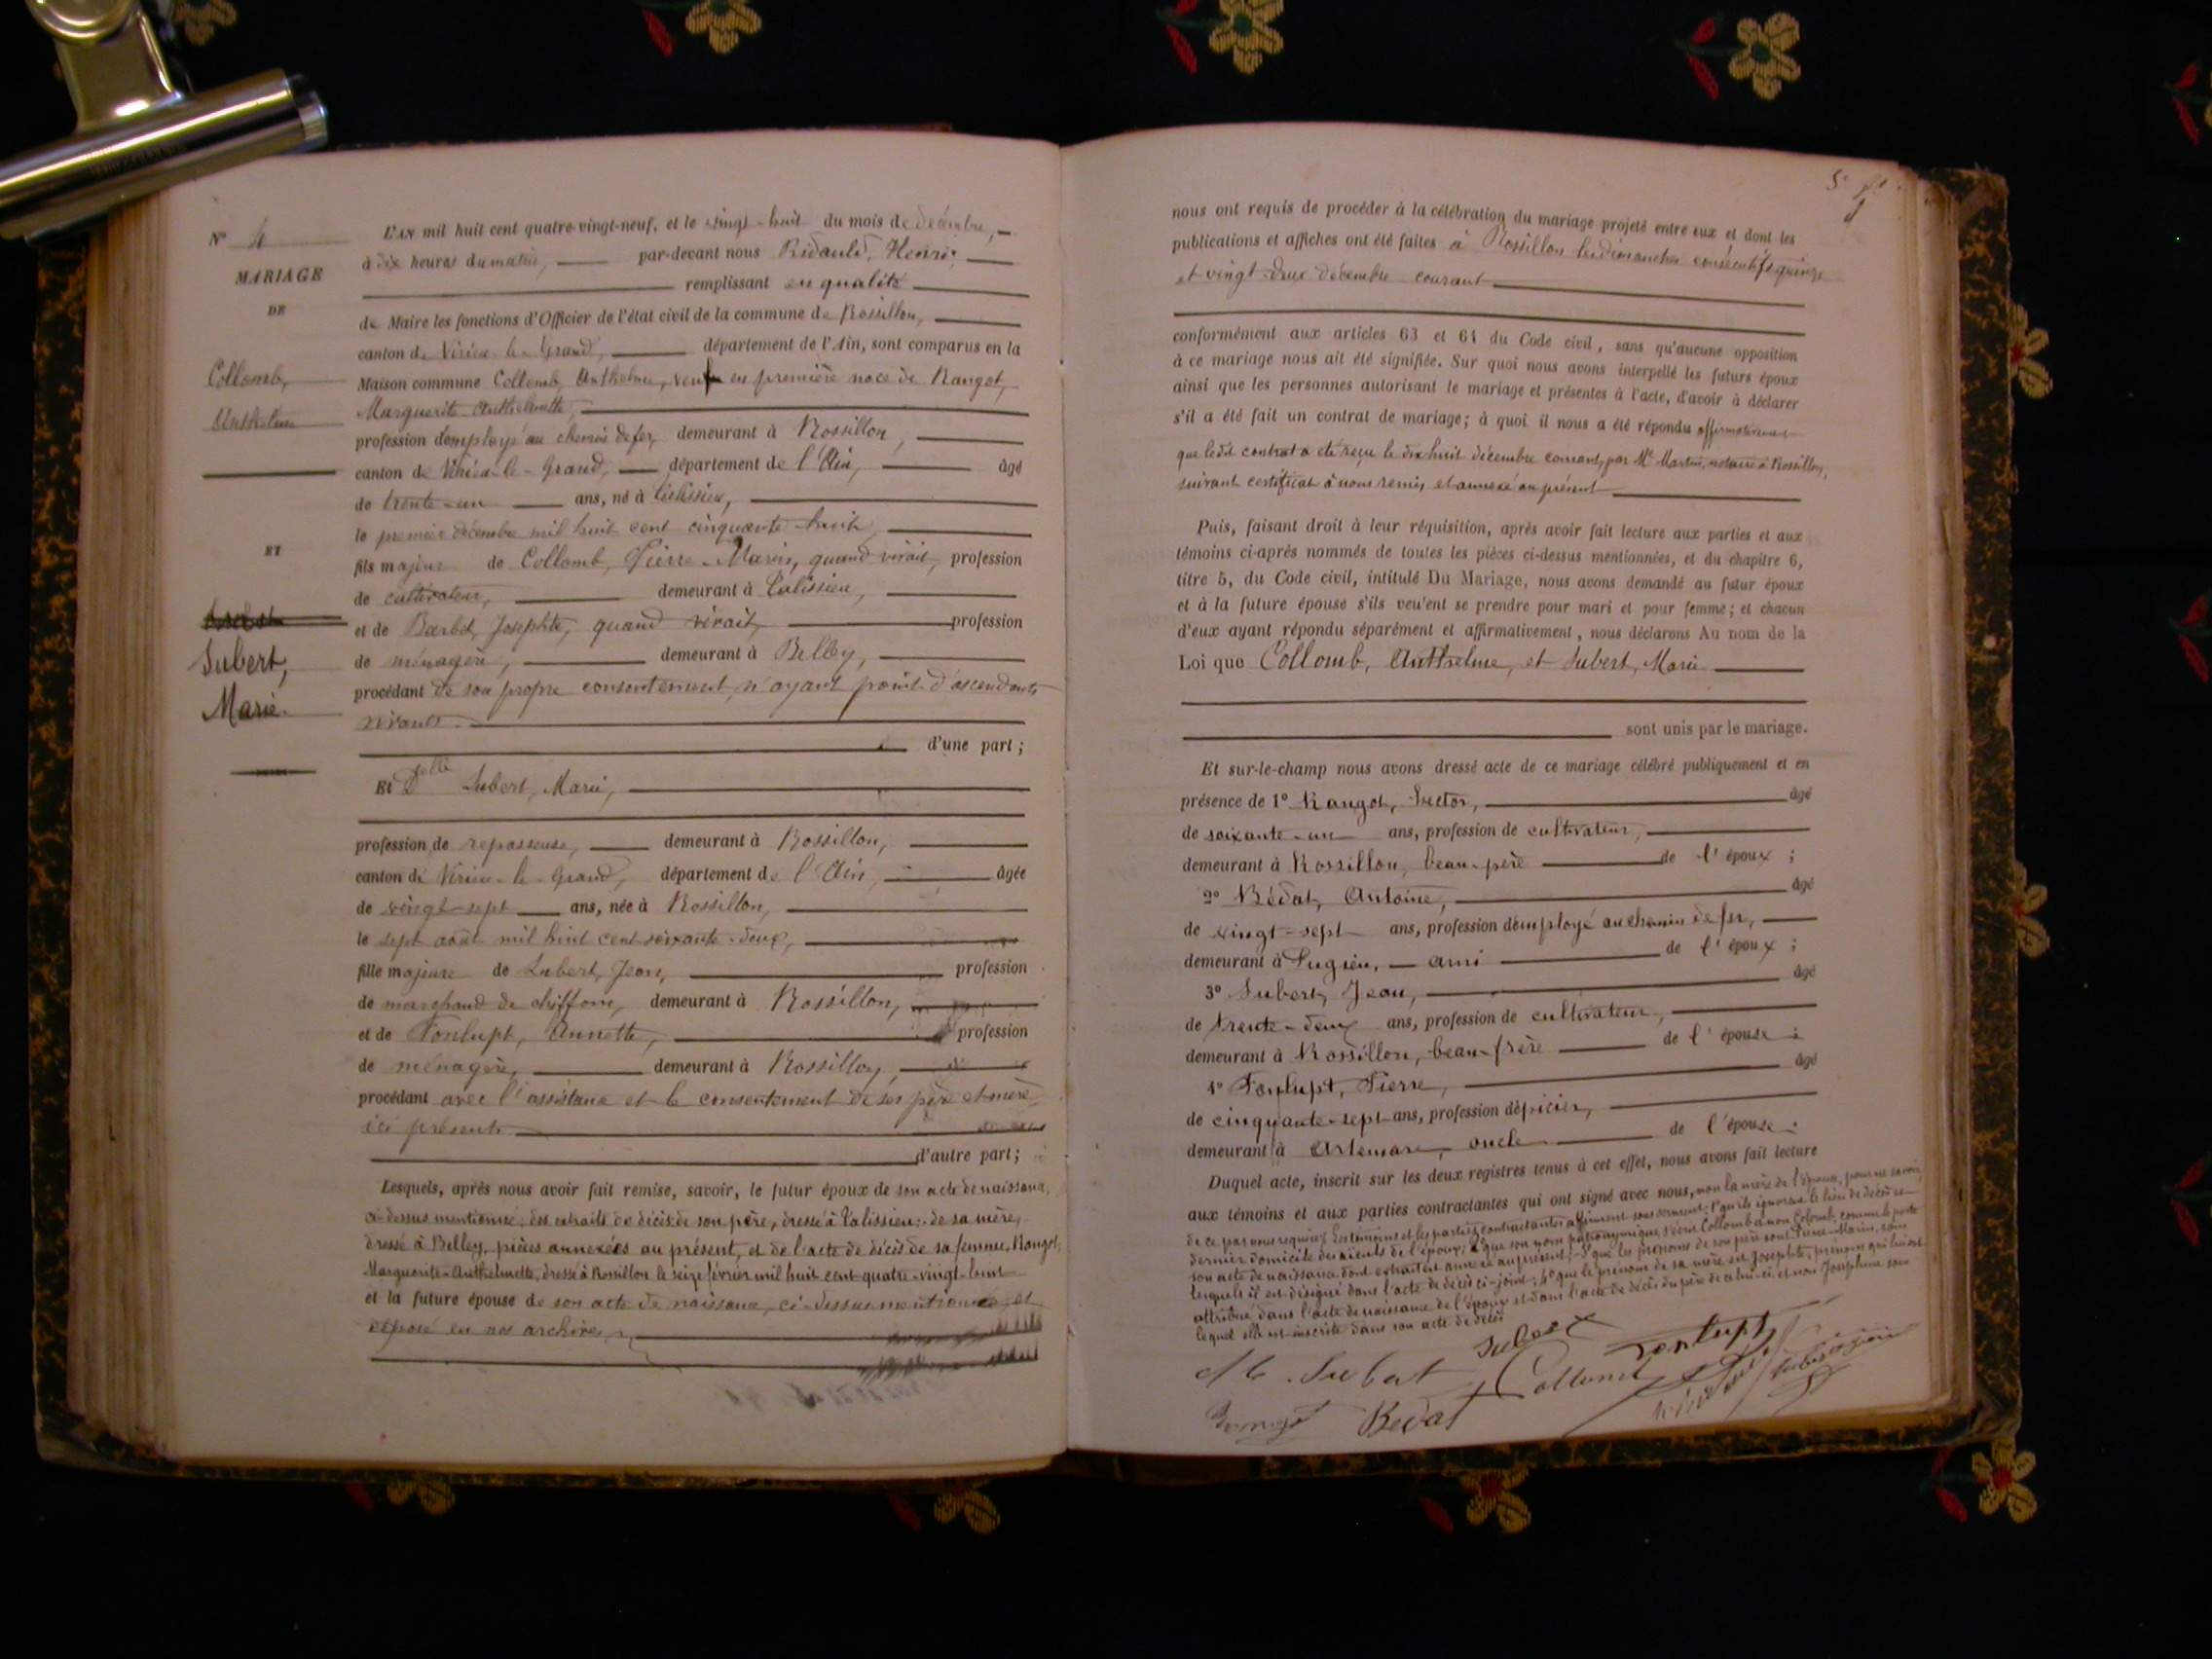 N° 4
MARIAGE
DE
Collomb,
Anthelme
ET
Jubert,
Marie.
L'AN mil huit cent quatre-vingt-neuf, et le vingt-huit du mois de décembre,
à dix heures du matin, par-devant nous Ridauld, Henri,
remplissant en qualité
de Maire les fonctions d'Officier de l'état civil de la commune de Rossillon,
canton de Virieu-le-Grand, département de l'Ain, sont comparus en la
Maison commune Collomb, Anthelme, veuf en première noce de Rangot,
Marguerite-Anthelmette,
profession d'employé au chemin de fer, demeurant à Rossillon,
canton de Virieu-le-Grand, département de l'Ain, âgé
de trente-un ans, né à Talissieu,
le premier décembre mil huit cent cinquante-huit,
fils majeur de Collomb, Pierre-Marin, quand vivait, profession
de cultivateur, demeurant à Talissieu,
et de Barbet, Josephte, quand vivait, profession
de ménagère, demeurant à Belley,
procédant de son propre consentement, n'ayant point d'ascendants
vivants.
d'une part;
Et Delle Jubert, Marie,
profession de repasseuse, demeurant à Rossillon,
canton de Virieu-le-Grand, département de l'Ain, âgée
de vingt-sept ans, née à Rossillon,
le sept août mil huit cent soixante-deux,
fille majeure de Jubert, Jean, profession
de marchand de chiffons, demeurant à Rossillon,
et de Fontupt, Annette, profession
de ménagère, demeurant à Rossillon,
procédant avec l'assistance et le consentement de ses père et mère
ici présents
d'autre part;
Lesquels, après nous avoir fait remise, savoir, le futur époux de son acte de naissance,
ci-dessus mentionné; des extraits de décès de son père, dressé à Talissieu; de sa mère,
dressé à Belley, pièces annexées au présent, et de l'acte de décès de sa femme, Rangot,
Marguerite-Anthelmette, dressé à Rossillon le seize février mil huit cent quatre-vingt-huit
et la future épouse de son acte de naissance, ci-dessus mentionné, et
déposé en nos archives,
5
nous ont requis de procéder à la célébration du mariage projeté entre eux et dont les
publications et affiches ont été faites à Rossillon les dimanches consécutifs quinze
et vingt-deux décembre courant
conformément aux articles 63 et 64 du Code civil, sans qu'aucune opposition
à ce mariage nous ait été signifiée. Sur quoi nous avons interpellé les futurs époux
ainsi que les personnes autorisant le mariage et présentes à l'acte, d'avoir à déclarer
s'il a été fait un contrat de mariage; à quoi il nous a été répondu affirmativement
que ledit contrat a été reçu le dix huit décembre courant, par Me Martin, notaire à Rossillon,
suivant certificat à nous remis et annexé au présent
Puis, faisant droit à leur réquisition, après avoir fait lecture aux parties et aux
témoins ci-après nommés de toutes les pièces ci-dessus mentionnées, et du chapitre 6,
titre 5, du Code civil, intitulé Du Mariage, nous avons demandé au futur époux
et à la future épouse s'ils veu'ent se prendre pour mari et pour femme; et chacun
d'eux ayant répondu séparément et affirmativement, nous déclarons Au nom de la
Loi que Collomb, Anthelme, et Jubert, Marie
sont unis par le mariage.
Et sur-le-champ nous avons dressé acte de ce mariage célébré publiquement et en
présence de 1° Rangot, Hector, âgé
de soixante-un ans, profession de cultivateur,
demeurant à Rossillon, beau-père de l'époux;
2° Bédat, Antoine, âgé
de vingt-sept ans, profession d'employé au chemin de fer,
demeurant à Pugieu, ami de l'époux;
3° Jubert, Jean, âgé
de trente-deux ans, profession de cultivateur,
demeurant à Rossillon, beau-frère de l'épouse;
4° Fontupt, Pierre, âgé
de cinquante-sept ans, profession d'épicier,
demeurant à Artemare, oncle de l'épouse.
Duquel acte, inscrit sur les deux registres tenus à cet effet, nous avons fait lecture
aux témoins et aux parties contractantes qui ont signé avec nous, non la mère de l'épouse, pour ne savoir,
de ce par nous requise. Les témoins et les parties contractantes affirment sous serment: 1° qu'ils ignorent le lieu de décès et
dernier domicile des aïeuls de l'époux; 2° que son nom patronymique s'écrit Collomb et non Colomb, comme le porte
son acte de naissance dont extrait est annexé au présent; 3° que les prénoms de son père sont Pierre-Marin, sous
lesquels il est désigné dans l'acte de décès ci-joint; 4° que le prénom de sa mère est Josephte, prénom qui lui est
attribué dans l'acte de naissance de l'époux et dans l'acte de décès du père de celui-ci, et non Josephine sous
lequel elle est inscrite dans son acte de décès
Jubert Fontupt
M Jubert Collomb
Rangot Bedat